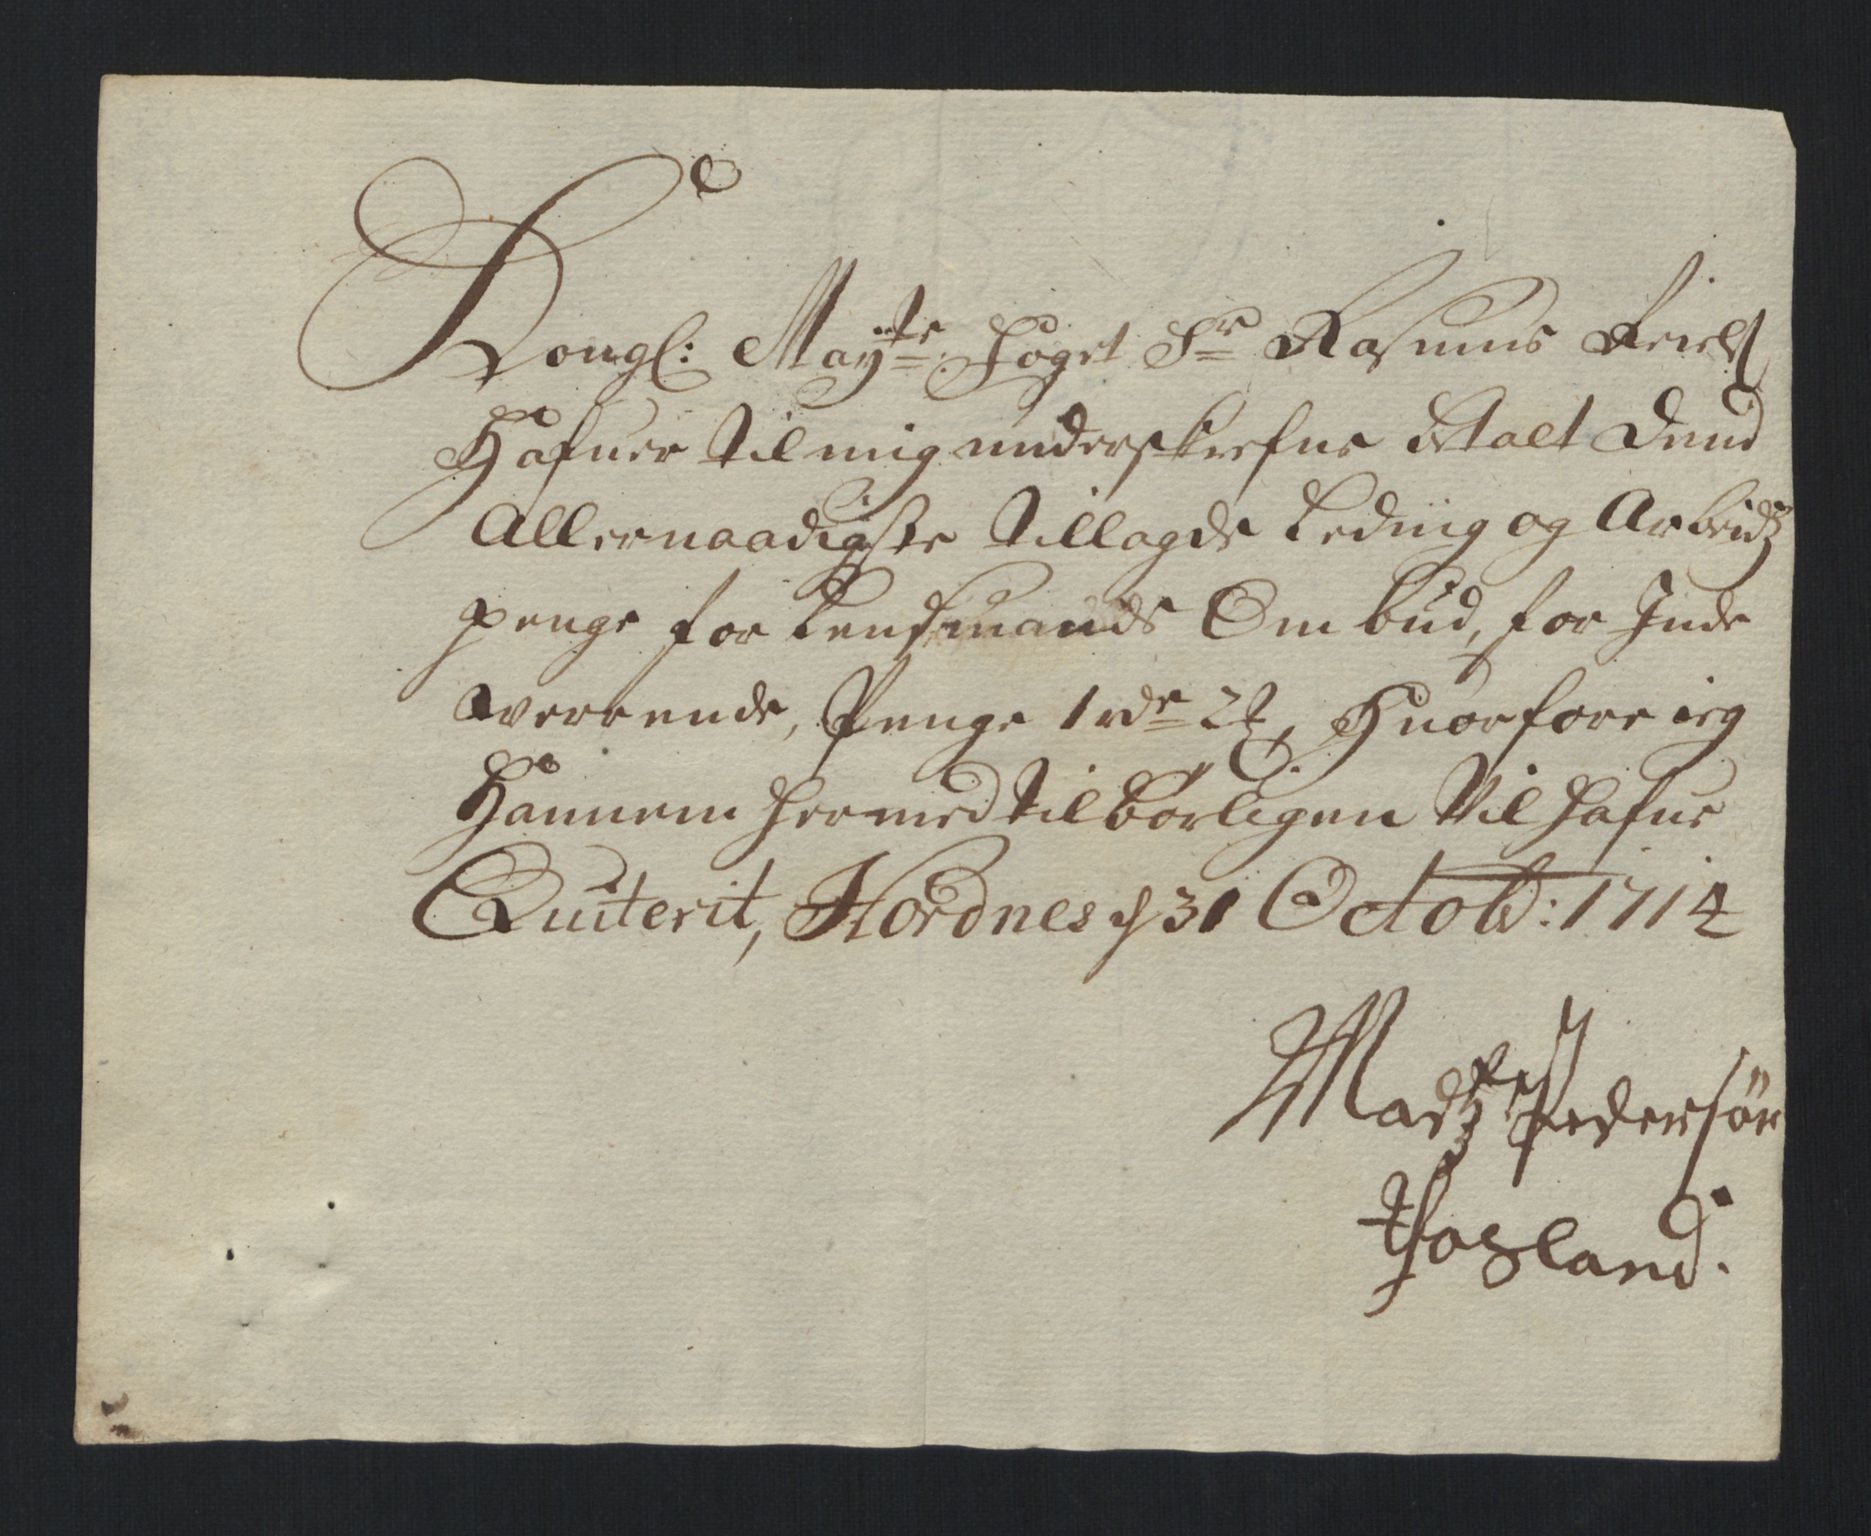 Kongl: Mayts: Foget Sr Rasmus Feiels
Hafuer til mig underskrefne betalt Dend
Allernaadigste tillagde Leding og Arbeidz
penge for Lensmands Ombud, for Inde
werrende, Penge 1 rdr 2 Huorfore ieg
Hannem hermed tilbørligen Vil hafue
Quiterit, Nordnes d 31 Octob: 1714
Madz Pedersøn